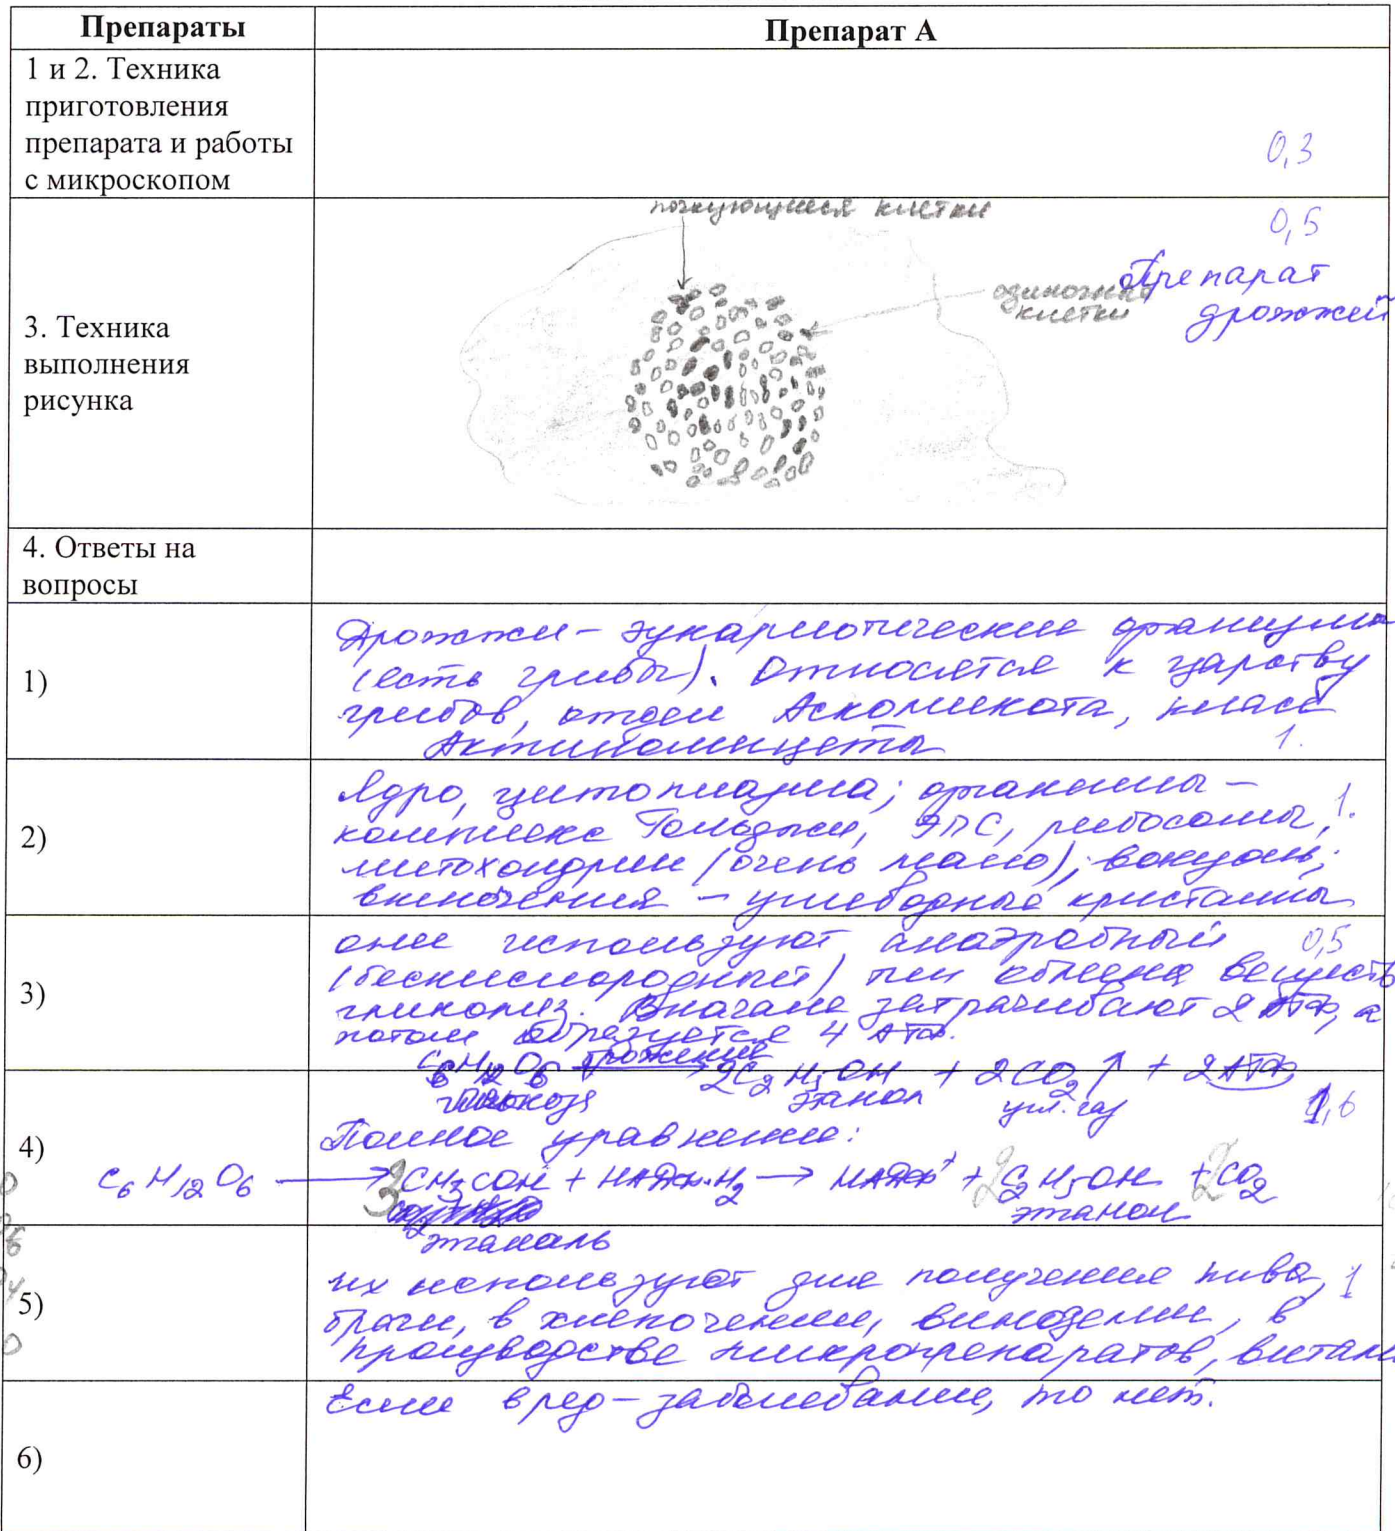 Препараты
Препарат А
1 и 2. Техника
приготовления
препарата и работы
с микроскопом
0,3
3. Техника
выполнения
рисунка
почкующиеся клетки
0,5
Препарат
дрожжей
одиночные
клетки
4. Ответы на
вопросы
1)
Дрожжи – эукариотические
(есть грибы). Относятся к царству
грибов, отдел Аскомикота, класс
Актиномицеты
1.
2)
Ядро, цитоплазма; органеллы –
комплекс Гольджи, ЭПС, рибосомы,
1.
митохондрии (очень мало); вакуоль;
включения – углеводные кристаллы
3)
они используют анаэробный
0,5
(бескислородный) тип обмена веществ
гликолиз. Вначале затрачивают 2 АТФ, а
потом образуется 4 АТФ.
C6H12O6 брожение 2C2H5OH + 2CO2↑ + 2АТФ
глюкоза этанол угл. газ
4)
Полное уравнение:
C6H12O6 → CH3COH + НАДН·H2 → НАДФ+ + 2C2H5OH + 2CO2
этанол
этаналь
5)
их используют для получения пива,
1
браги, в хлебопечении, виноделии, в
производстве микропрепаратов,
6)
Если вред – заболевание, то нет.